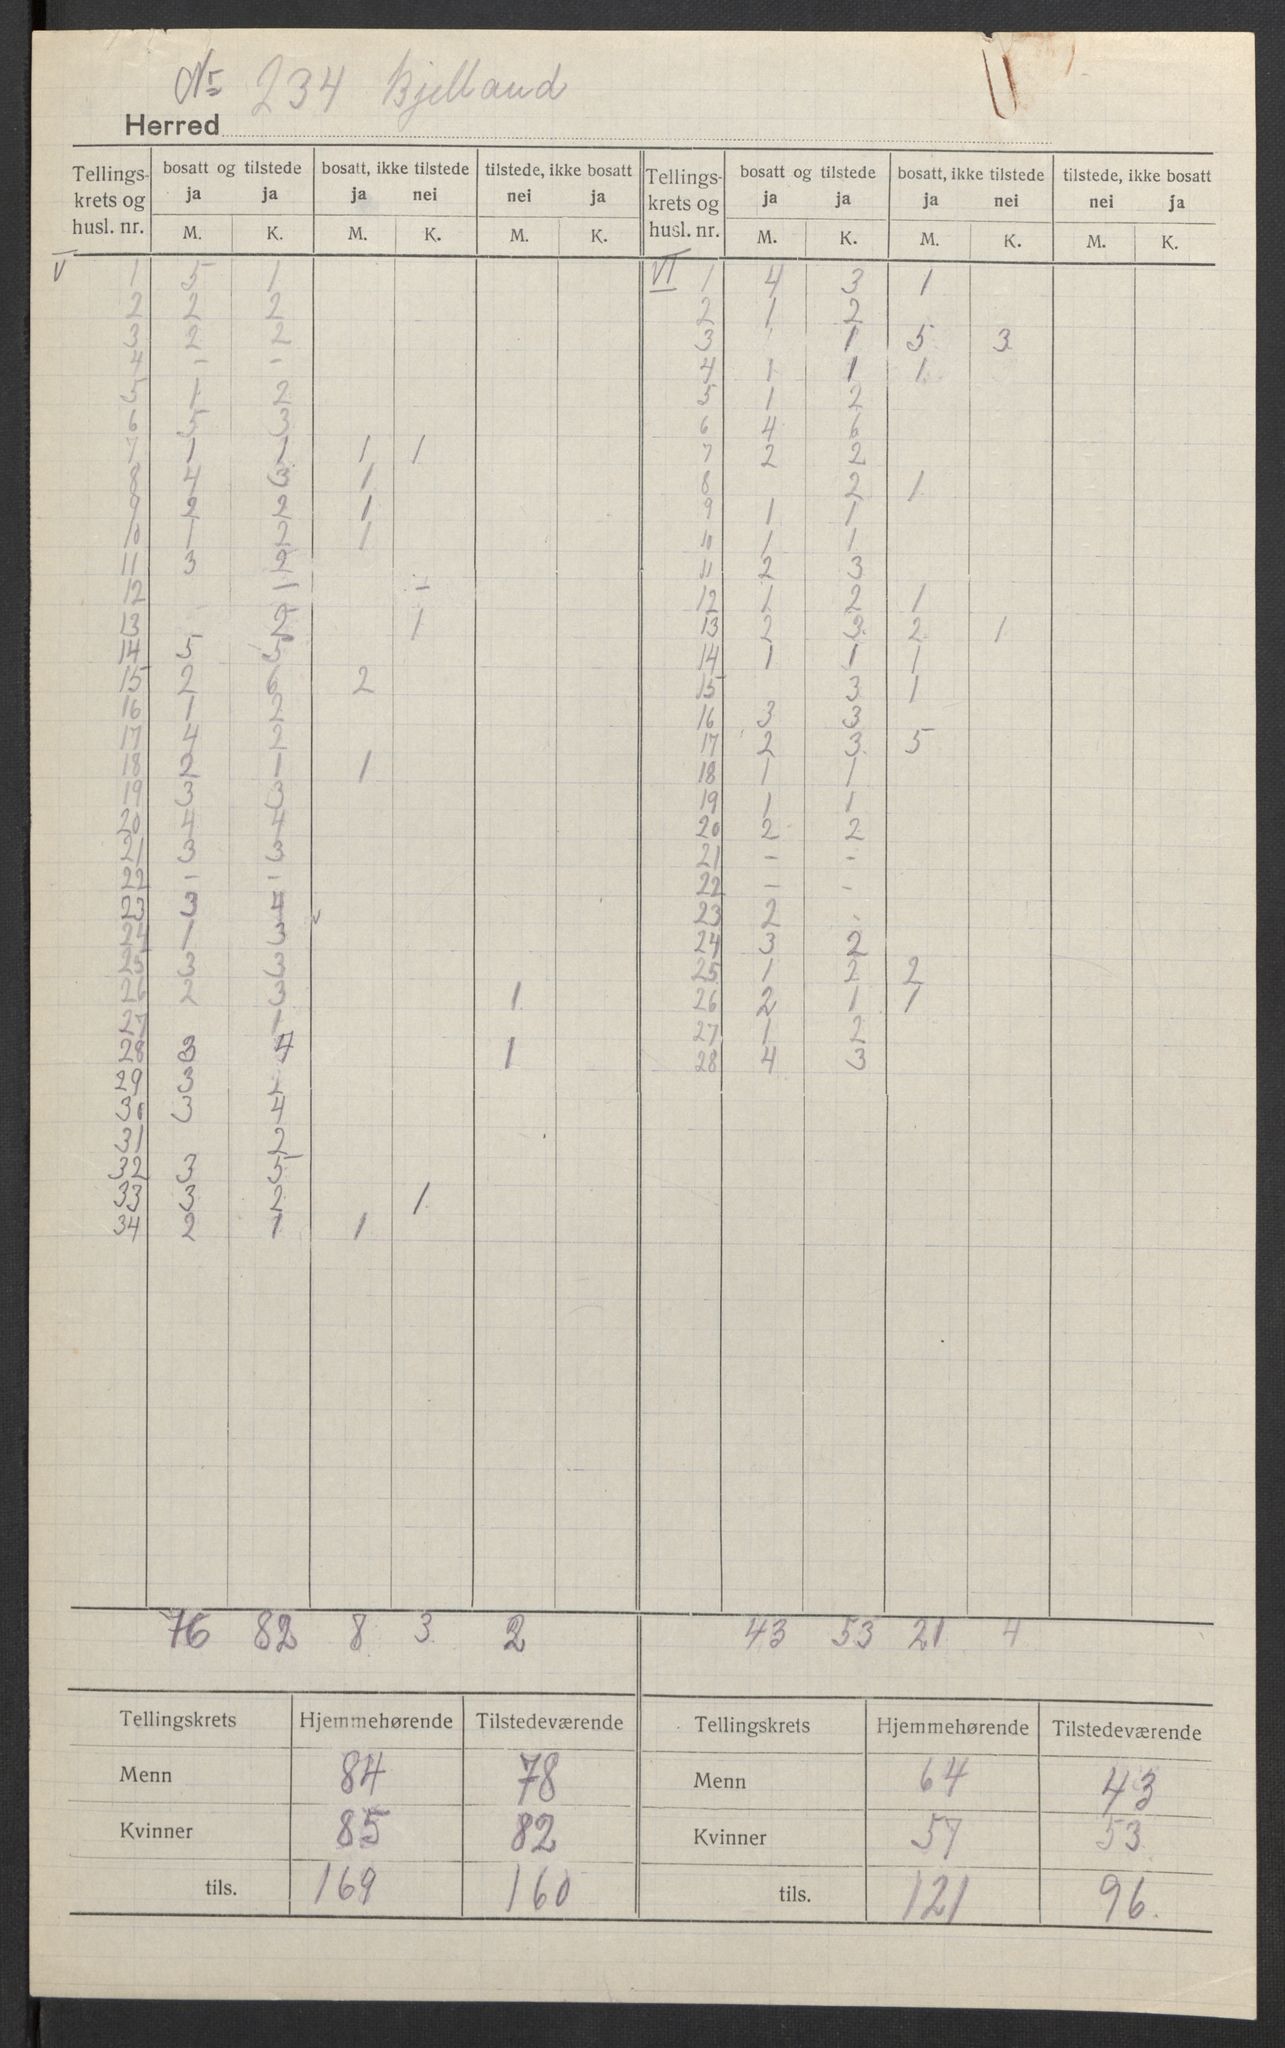 No 234 Bjelland
Herred
Tellings-krets og husl. nr. | bosatt og tilstede ja ja M. K. | bosatt, ikke tilstede ja nei M. K. | tilstede, ikke bosatt nei ja M. K.
V
1 5 1
2 2 2
3 2 2
4 - -
5 1 2
6 5 3
7 1 1 1 1
8 4 3 1
9 2 2 1
10 1 2 1
11 3 2
12 - -
13 - 2 1
14 5 5
15 2 6 2
16 1 2
17 4 2
18 2 1 1
19 3 3
20 4 4
21 3 3
22 - -
23 3 4
24 1 3
25 3 3
26 2 3 1
27 1
28 3 4 1
29 3 2
30 3 4
31 2
32 3 5
33 3 2 1
34 2 1 1
76 82 8 3 2
Tellingskrets Hjemmehørende Tilstedeværende
Menn 84 78
Kvinner 85 82
tils. 169 160
Tellings-krets og husl. nr. | bosatt og tilstede ja ja M. K. | bosatt, ikke tilstede ja nei M. K. | tilstede, ikke bosatt nei ja M. K.
VI
1 4 3 1
2 1 2
3 1 5 3
4 1 1 1
5 1 2
6 4 6
7 2 2
8 2 1
9 1 1
10 1 1
11 2 3
12 1 2 1
13 2 3 2 1
14 1 1 1
15 3 1
16 3 3
17 2 3 5
18 1 1
19 1 1
20 2 2
21 - -
22 - -
23 2 -
24 3 2
25 1 2 2
26 2 1 1
27 1 2
28 4 3
43 53 21 4
Tellingskrets Hjemmehørende Tilstedeværende
Menn 64 43
Kvinner 57 53
tils. 121 96